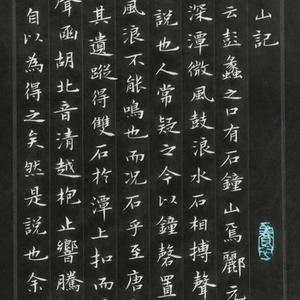 山記
云彭蠡之口有石鐘山焉酈元
深潭微風鼓浪水石相搏聲
說也人常疑之今以鐘磬置
風浪不能鳴也而況石乎至唐
其遺蹤得雙石於潭上扣而
聲函胡北音清越枹止響騰
自以為得之矣然是說也余